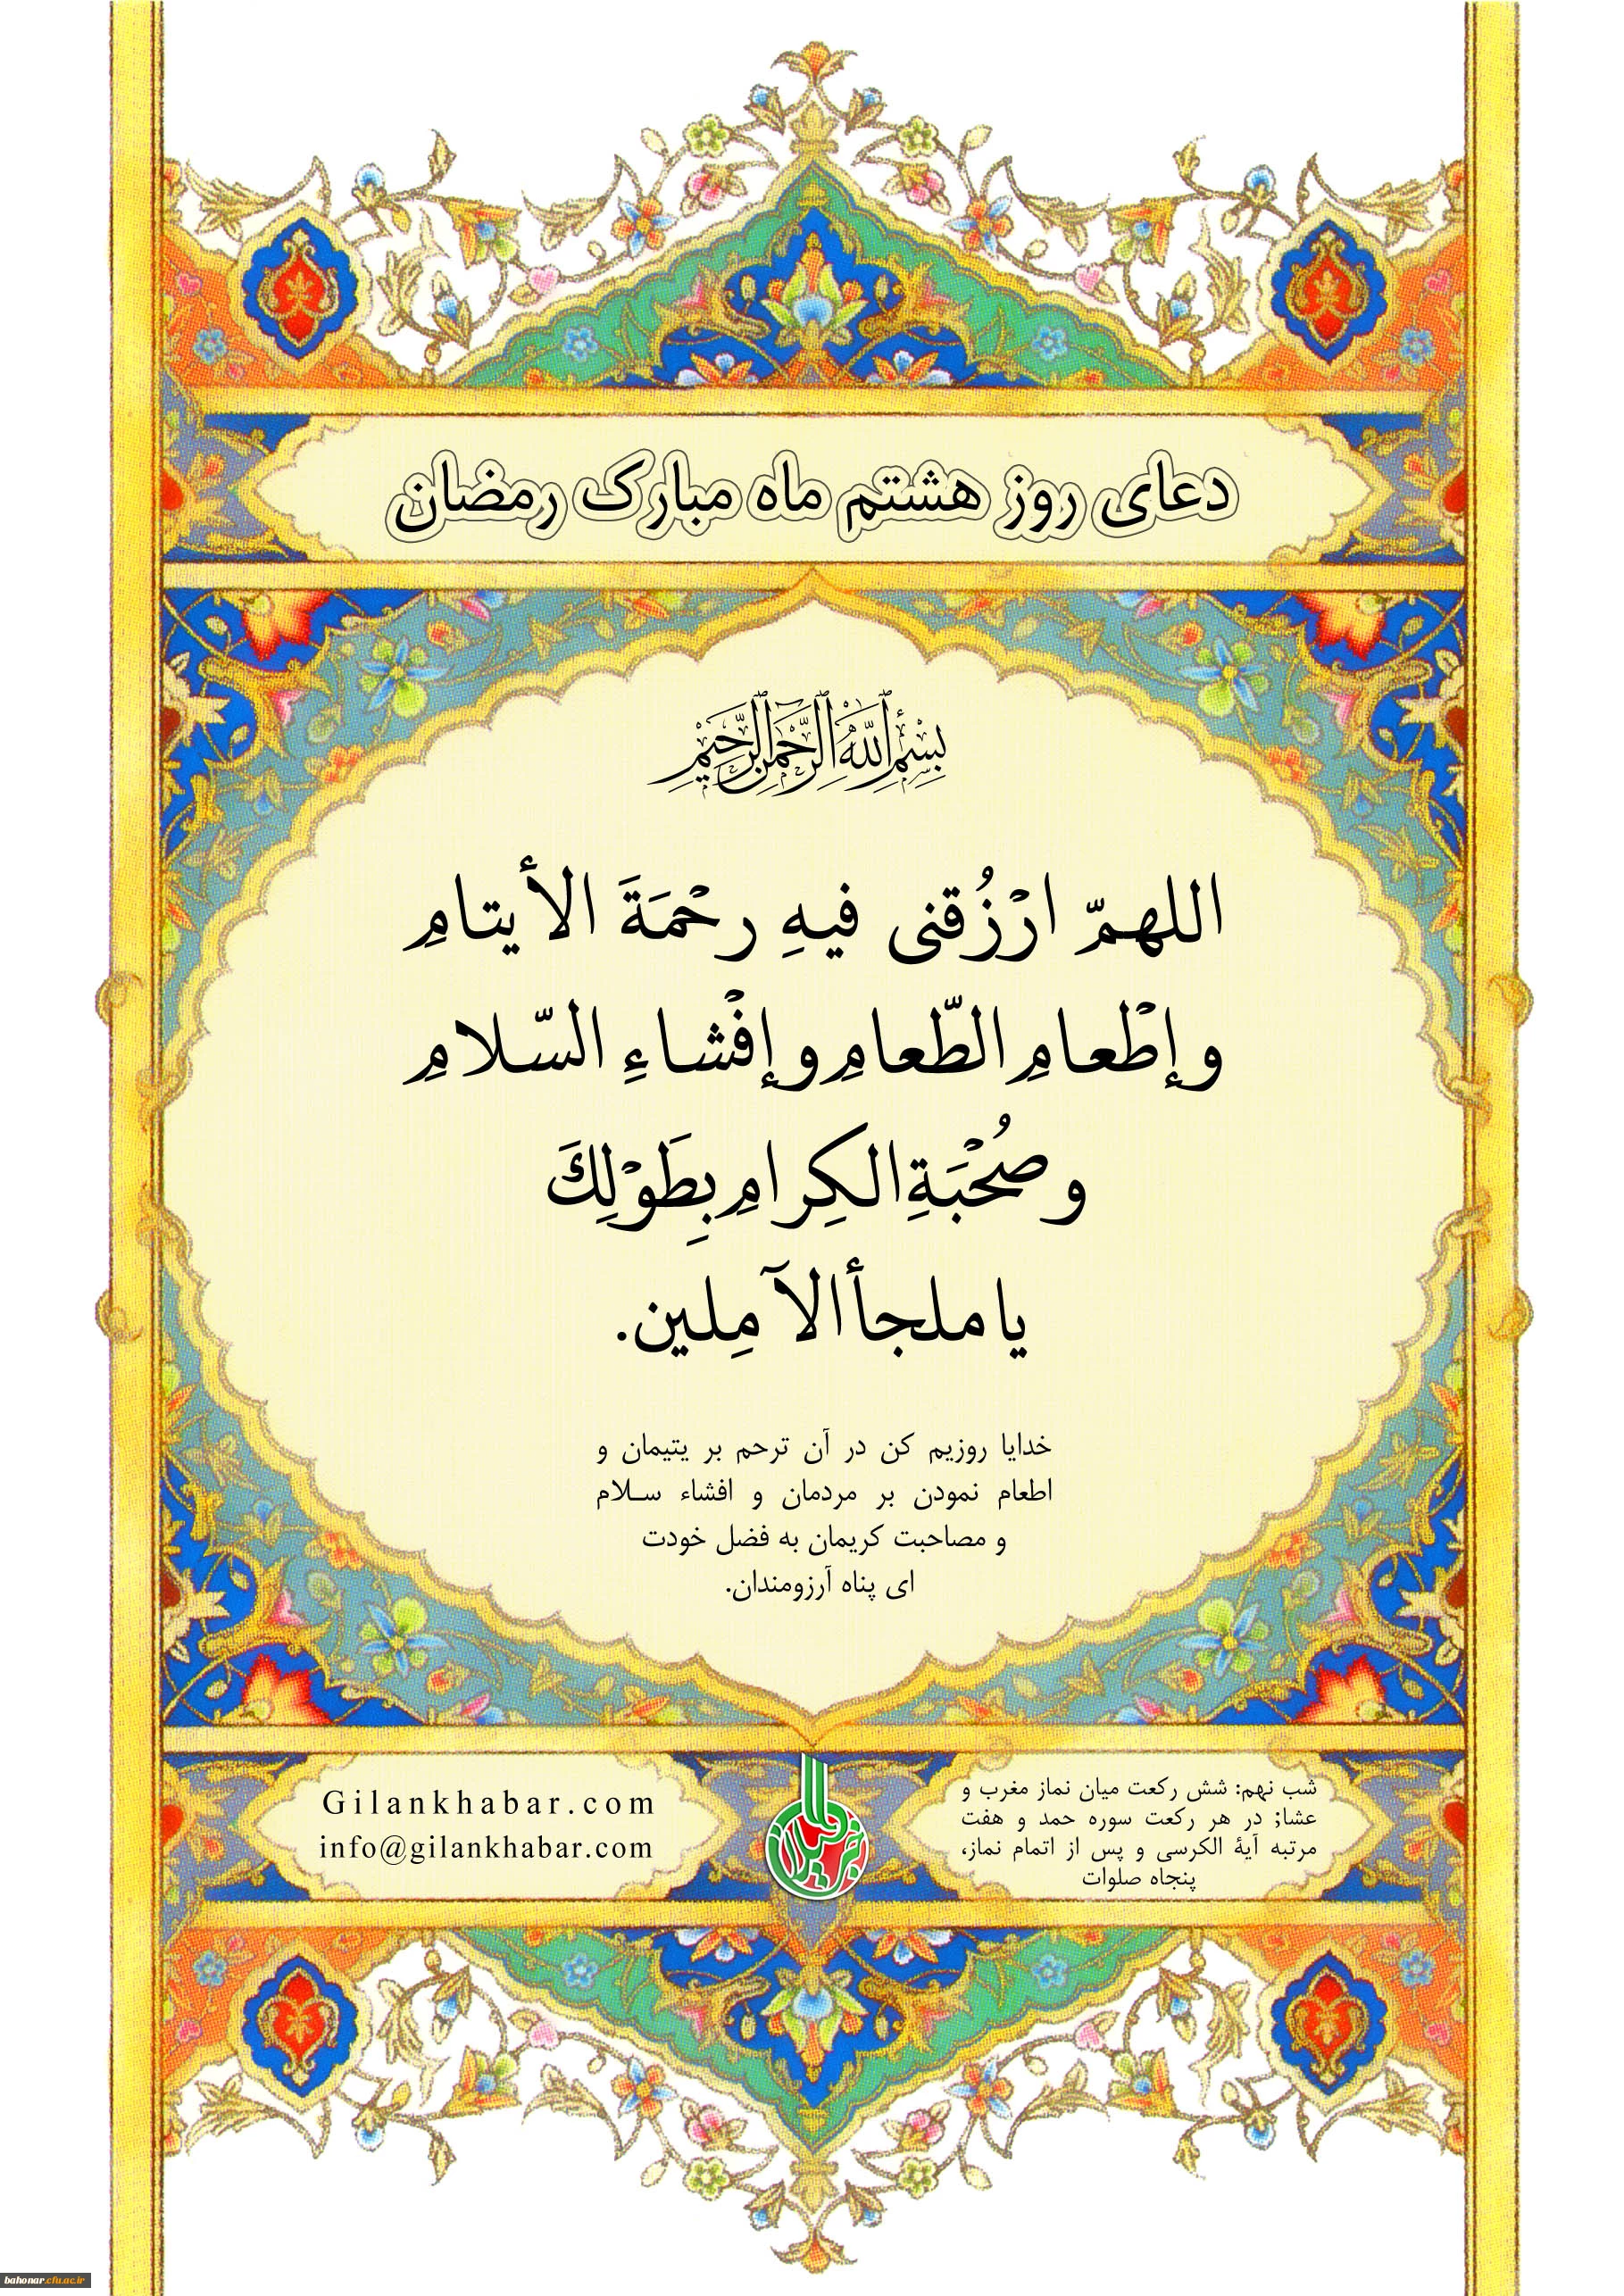 دعای روز هشتم ماه مبارک رمضان
بِسْمِ ٱللَّهِ ٱلرَّحْمَٰنِ ٱلرَّحِيمِ
اللهمّ ارْزُقنی فیهِ رحْمَةَ الأیتامِ
وإطْعامِ الطّعامِ وإفْشاءِ السّلامِ
وصُحْبَةِ الکِرامِ بِطَوْلِكَ
یا ملجأ الآمِلین.
خدایا روزیم کن در آن ترحم بر یتیمان و
اطعام نمودن بر مردمان و افشاء سـلام
و مصاحبت کریمان به فضل خودت
ای پناه آرزومندان.
شب نهم: شش رکعت میان نماز مغرب و
عشا; در هر رکعت سوره حمد و هفت
مرتبه آیهٔ الکرسی و پس از اتمام نماز،
پنجاه صلوات
Gilankhabar.com
info@gilankhabar.com
خبر گیلان
bahonar.cfu.ac.ir